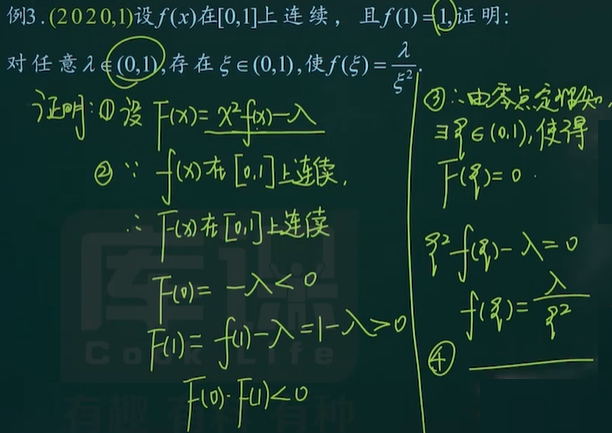 例3.(2020,1)设f(x)在[0,1]上连续，且f(1)=1,证明:
对任意λ∈(0,1),存在ξ∈(0,1),使f(ξ)=λ/ξ².
证明:①设 F(x)=x²f(x)-λ
②∵ f(x)在[0,1]上连续,
∴ F(x)在[0,1]上连续
F(0)=-λ<0
F(1)=f(1)-λ=1-λ>0
F(0)·F(1)<0
③∴由零点定理知,
∃ξ∈(0,1),使得
F(ξ)=0.
ξ²f(ξ)-λ=0
f(ξ)=λ/ξ²
④
库课
Cook Life
有趣 有料 有种